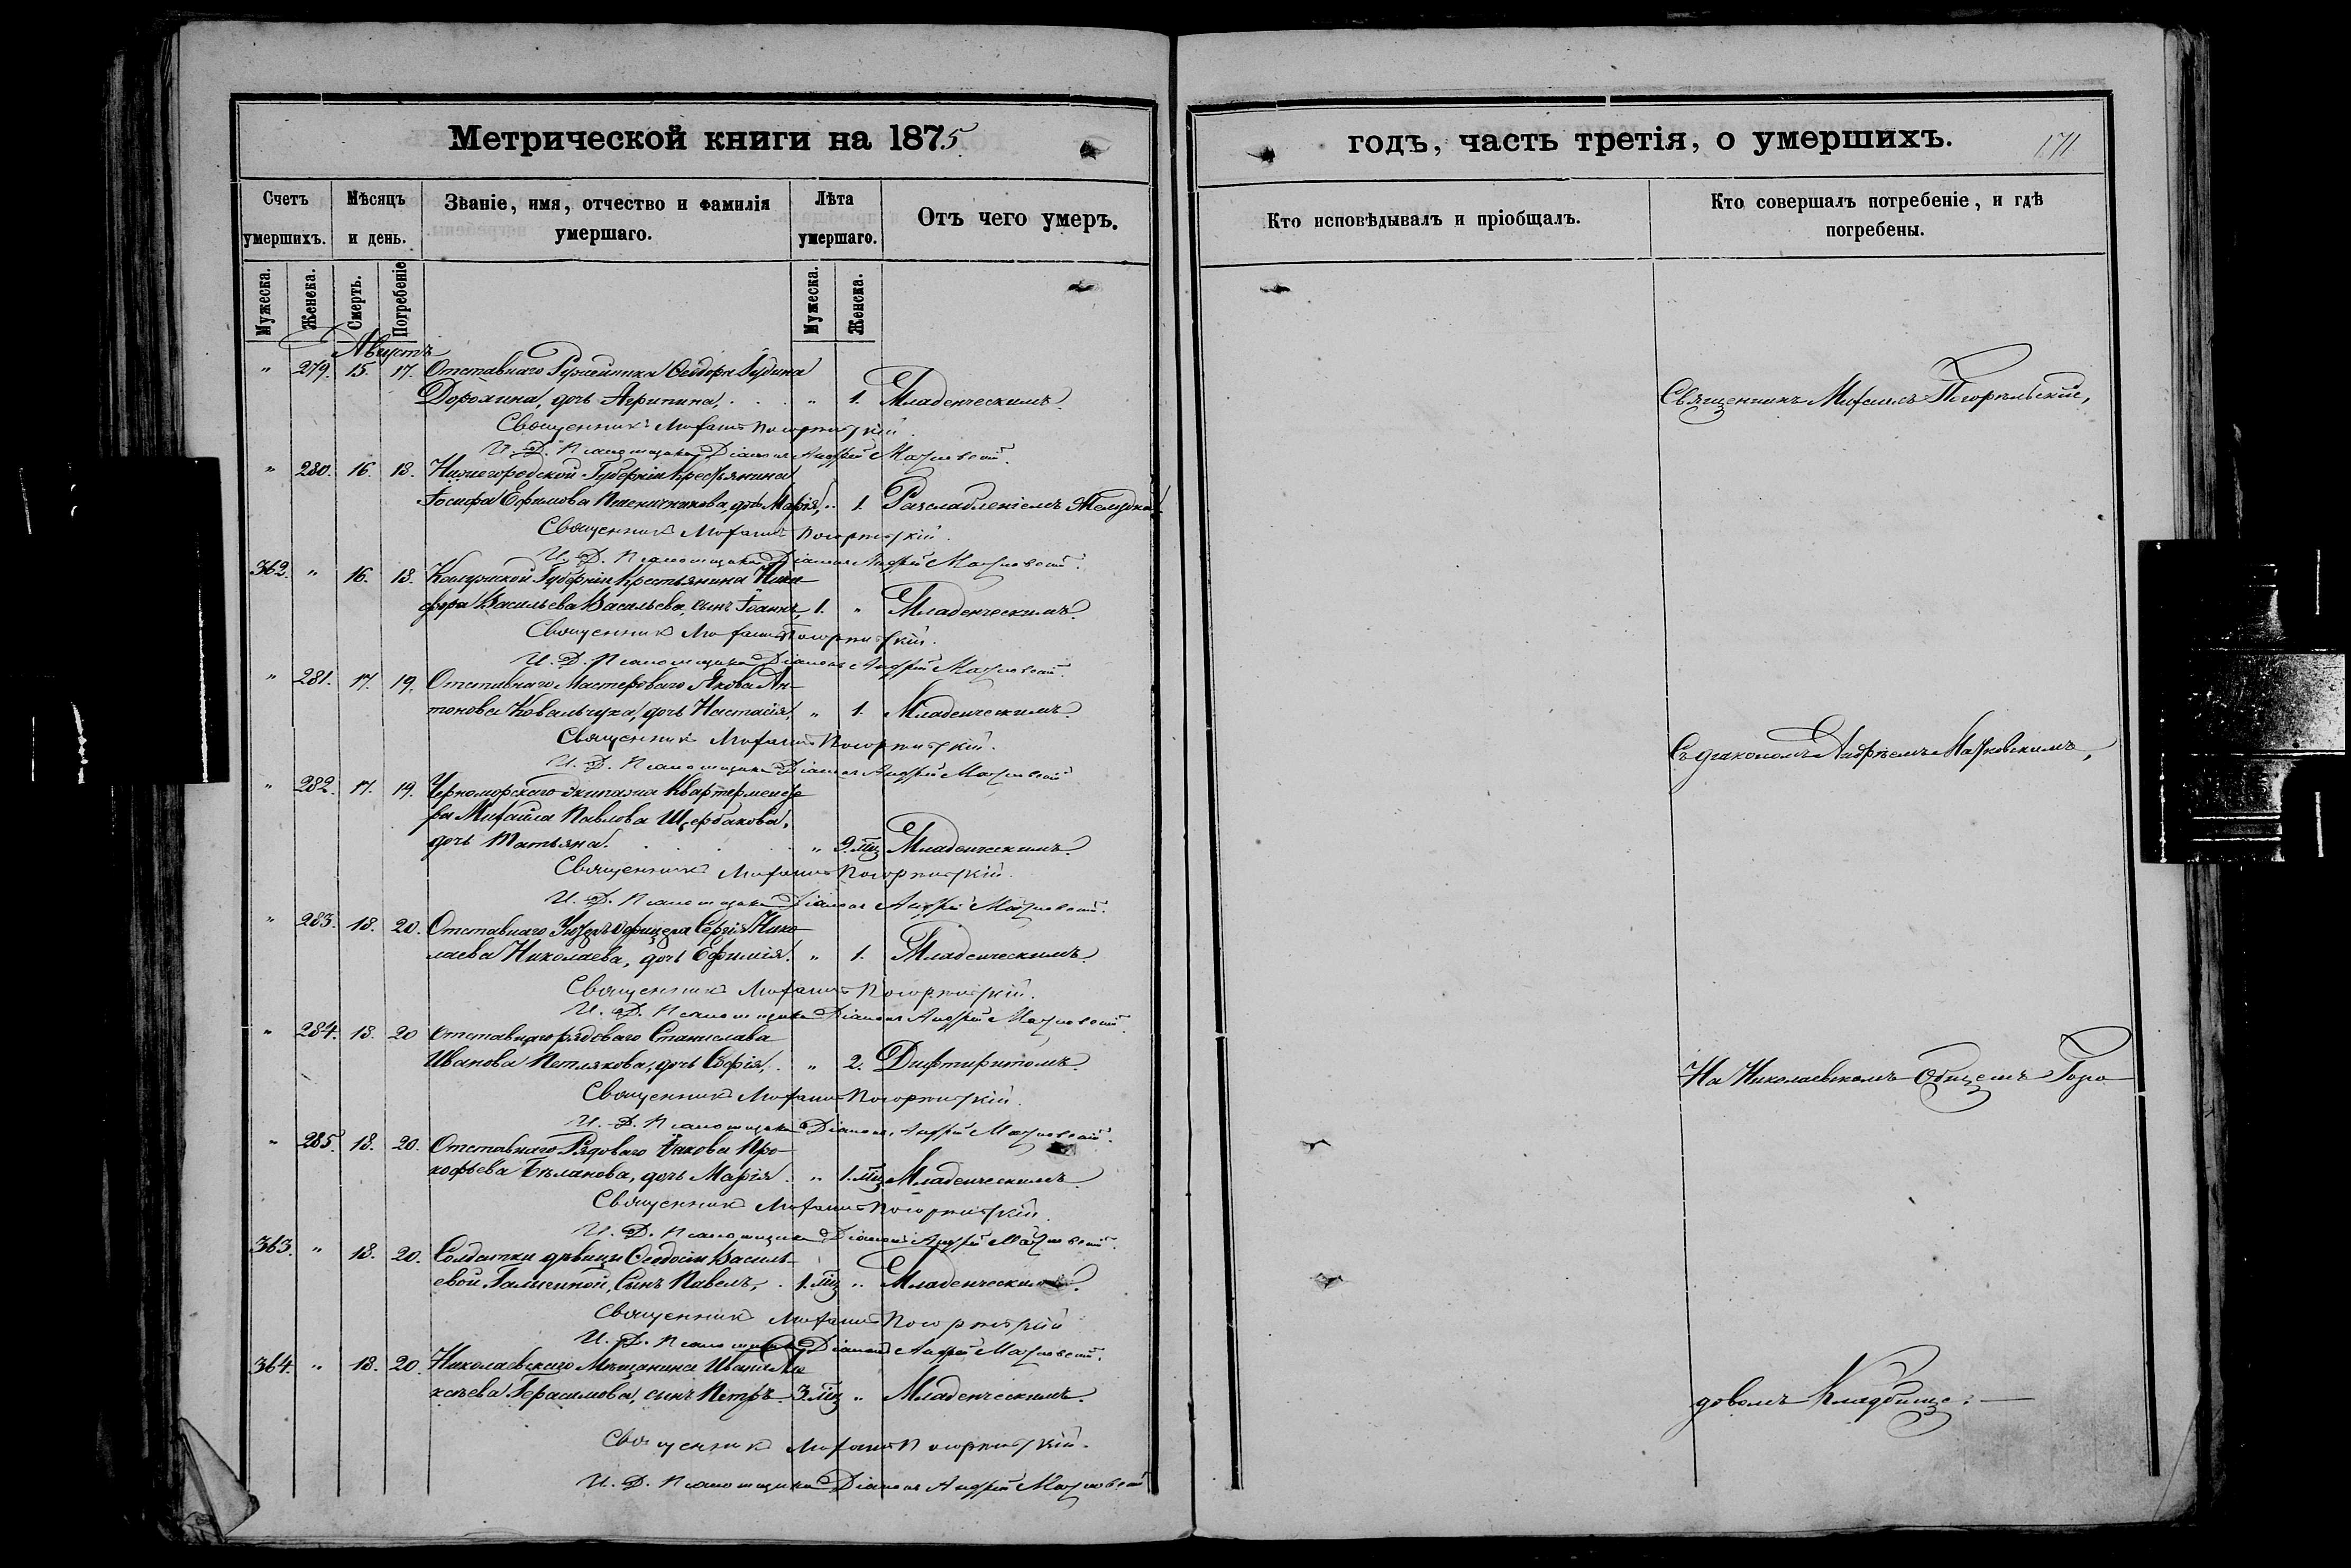 Метрической книги на 1875
годъ, часть третія, о умершихъ.
171
Счетъ умершихъ.
Мѣсяцъ и день.
Званіе, имя, отчество и фамилія умершаго.
Лѣта умершаго.
Отъ чего умеръ.
Кто исповѣдывалъ и пріобщалъ.
Кто совершалъ погребеніе, и гдѣ погребены.
Мужеска. Женска. Смерть. Погребеніе Мужеска. Женска.
Августъ
" 279. 15. 17. Отставнаго Ружейника Ѳеодора
Дорохина, дочь Агрипина, " 1. Младенческимъ.
Священникъ Михаилъ Погорѣльскій.
И. Д. Псаломщика Діаконъ Андрей
" 280. 16. 18. Нижегородской Губерніи Крестьянина
Іосифа Ефимова Пшеничникова, дочь Марія, " 1. Разслабленіемъ Желудка.
Священникъ Михаилъ Погорѣльскій.
И. Д. Псаломщика Діаконъ Андрей
362. " 16. 18. Калужской Губерніи Крестьянина Ники-
фора Васильева Васильева, сынъ Іоаннъ, 1. " Младенческимъ.
Священникъ Михаилъ Погорѣльскій.
И. Д. Псаломщика Діаконъ Андрей
" 281. 17. 19. Отставнаго Мастероваго Якова Ан-
тонова Ковальчука, дочь Настасія, " 1. Младенческимъ.
Священникъ Михаилъ Погорѣльскій.
И. Д. Псаломщика Діаконъ Андрей
" 282. 17. 19. Черноморскаго экипажа Квартермейсте
ра Михаила Павлова Щербакова,
дочь Татьяна. " 9. мц Младенческимъ.
Священникъ Михаилъ Погорѣльскій.
И. Д. Псаломщика Діаконъ Андрей
" 283. 18. 20. Отставнаго Унтеръ офицера Сергія Нико-
лаева Николаева, дочь Ефимія. " 1. Младенческимъ.
Священникъ Михаилъ Погорѣльскій.
И. Д. Псаломщика Діаконъ Андрей
" 284. 18. 20 Отставнаго рядоваго Станислава
Иванова Петлякова, дочь Софія, " 2. Дифтиритомъ.
Священникъ Михаилъ Погорѣльскій.
И. Д. Псаломщика Діаконъ Андрей
" 285. 18. 20. Отставнаго Рядоваго Іакова Про-
кофьева Бѣланова, дочь Марія. " 1. мц Младенческимъ.
Священникъ Михаилъ Погорѣльскій
И. Д. Псаломщика Діаконъ Андрей
363. " 18. 20. Солдатки дѣвицы Ѳеодосіи Василь-
евой, Сынъ Павелъ, 1. мц " Младенческимъ.
Священникъ Михаилъ Погорѣльскій
И. Д. Псаломщика Діаконъ Андрей
364. " 18. 20. Николаевскаго Мѣщанина Ивана Але
ксѣева Герасимова, сынъ Петръ. 3. мц " Младенческимъ.
Священникъ Михаилъ Погорѣльскій.
И. Д. Псаломщика Діаконъ Андрей
Священникъ Михаилъ Погорѣльскій,
Съ діакономъ Андреемъ
На Николаевскомъ Общемъ Горо-
довомъ Кладбище.